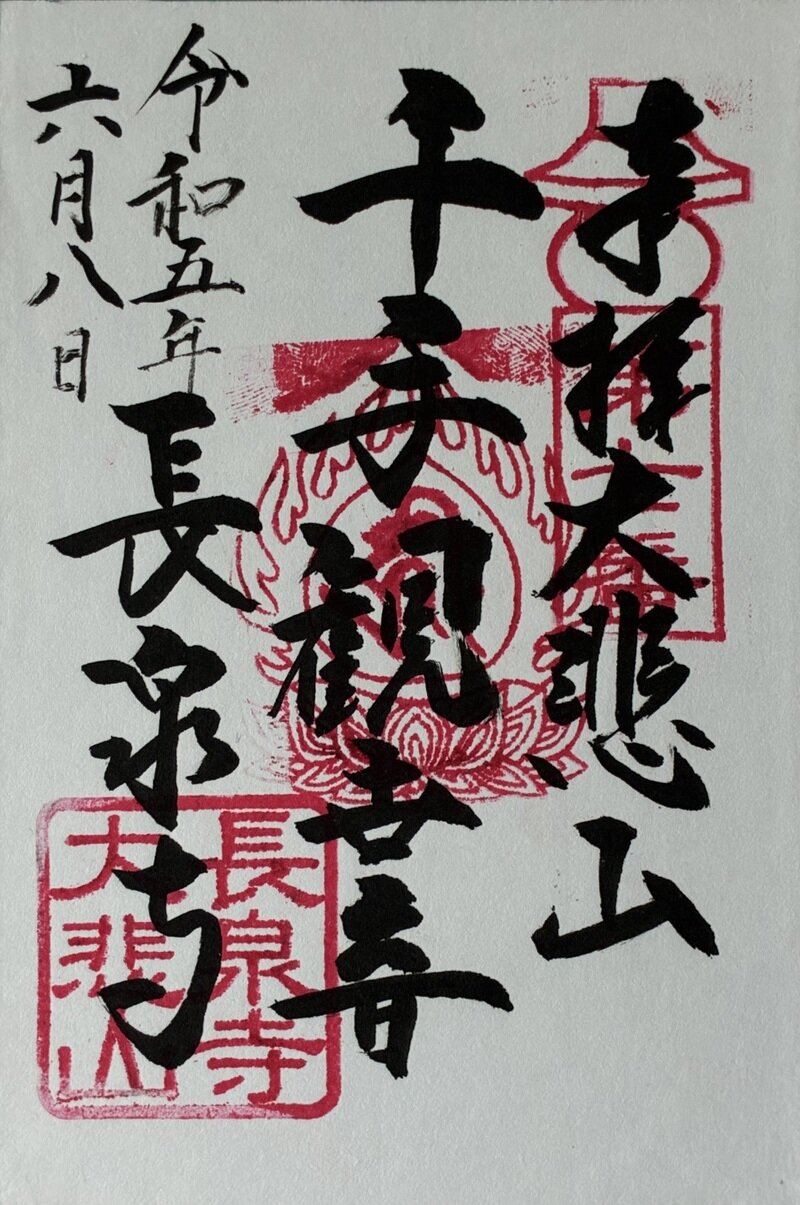 奉拝大悲山
千手觀世音
長泉寺
令和五年
六月八日
長泉寺
大悲山